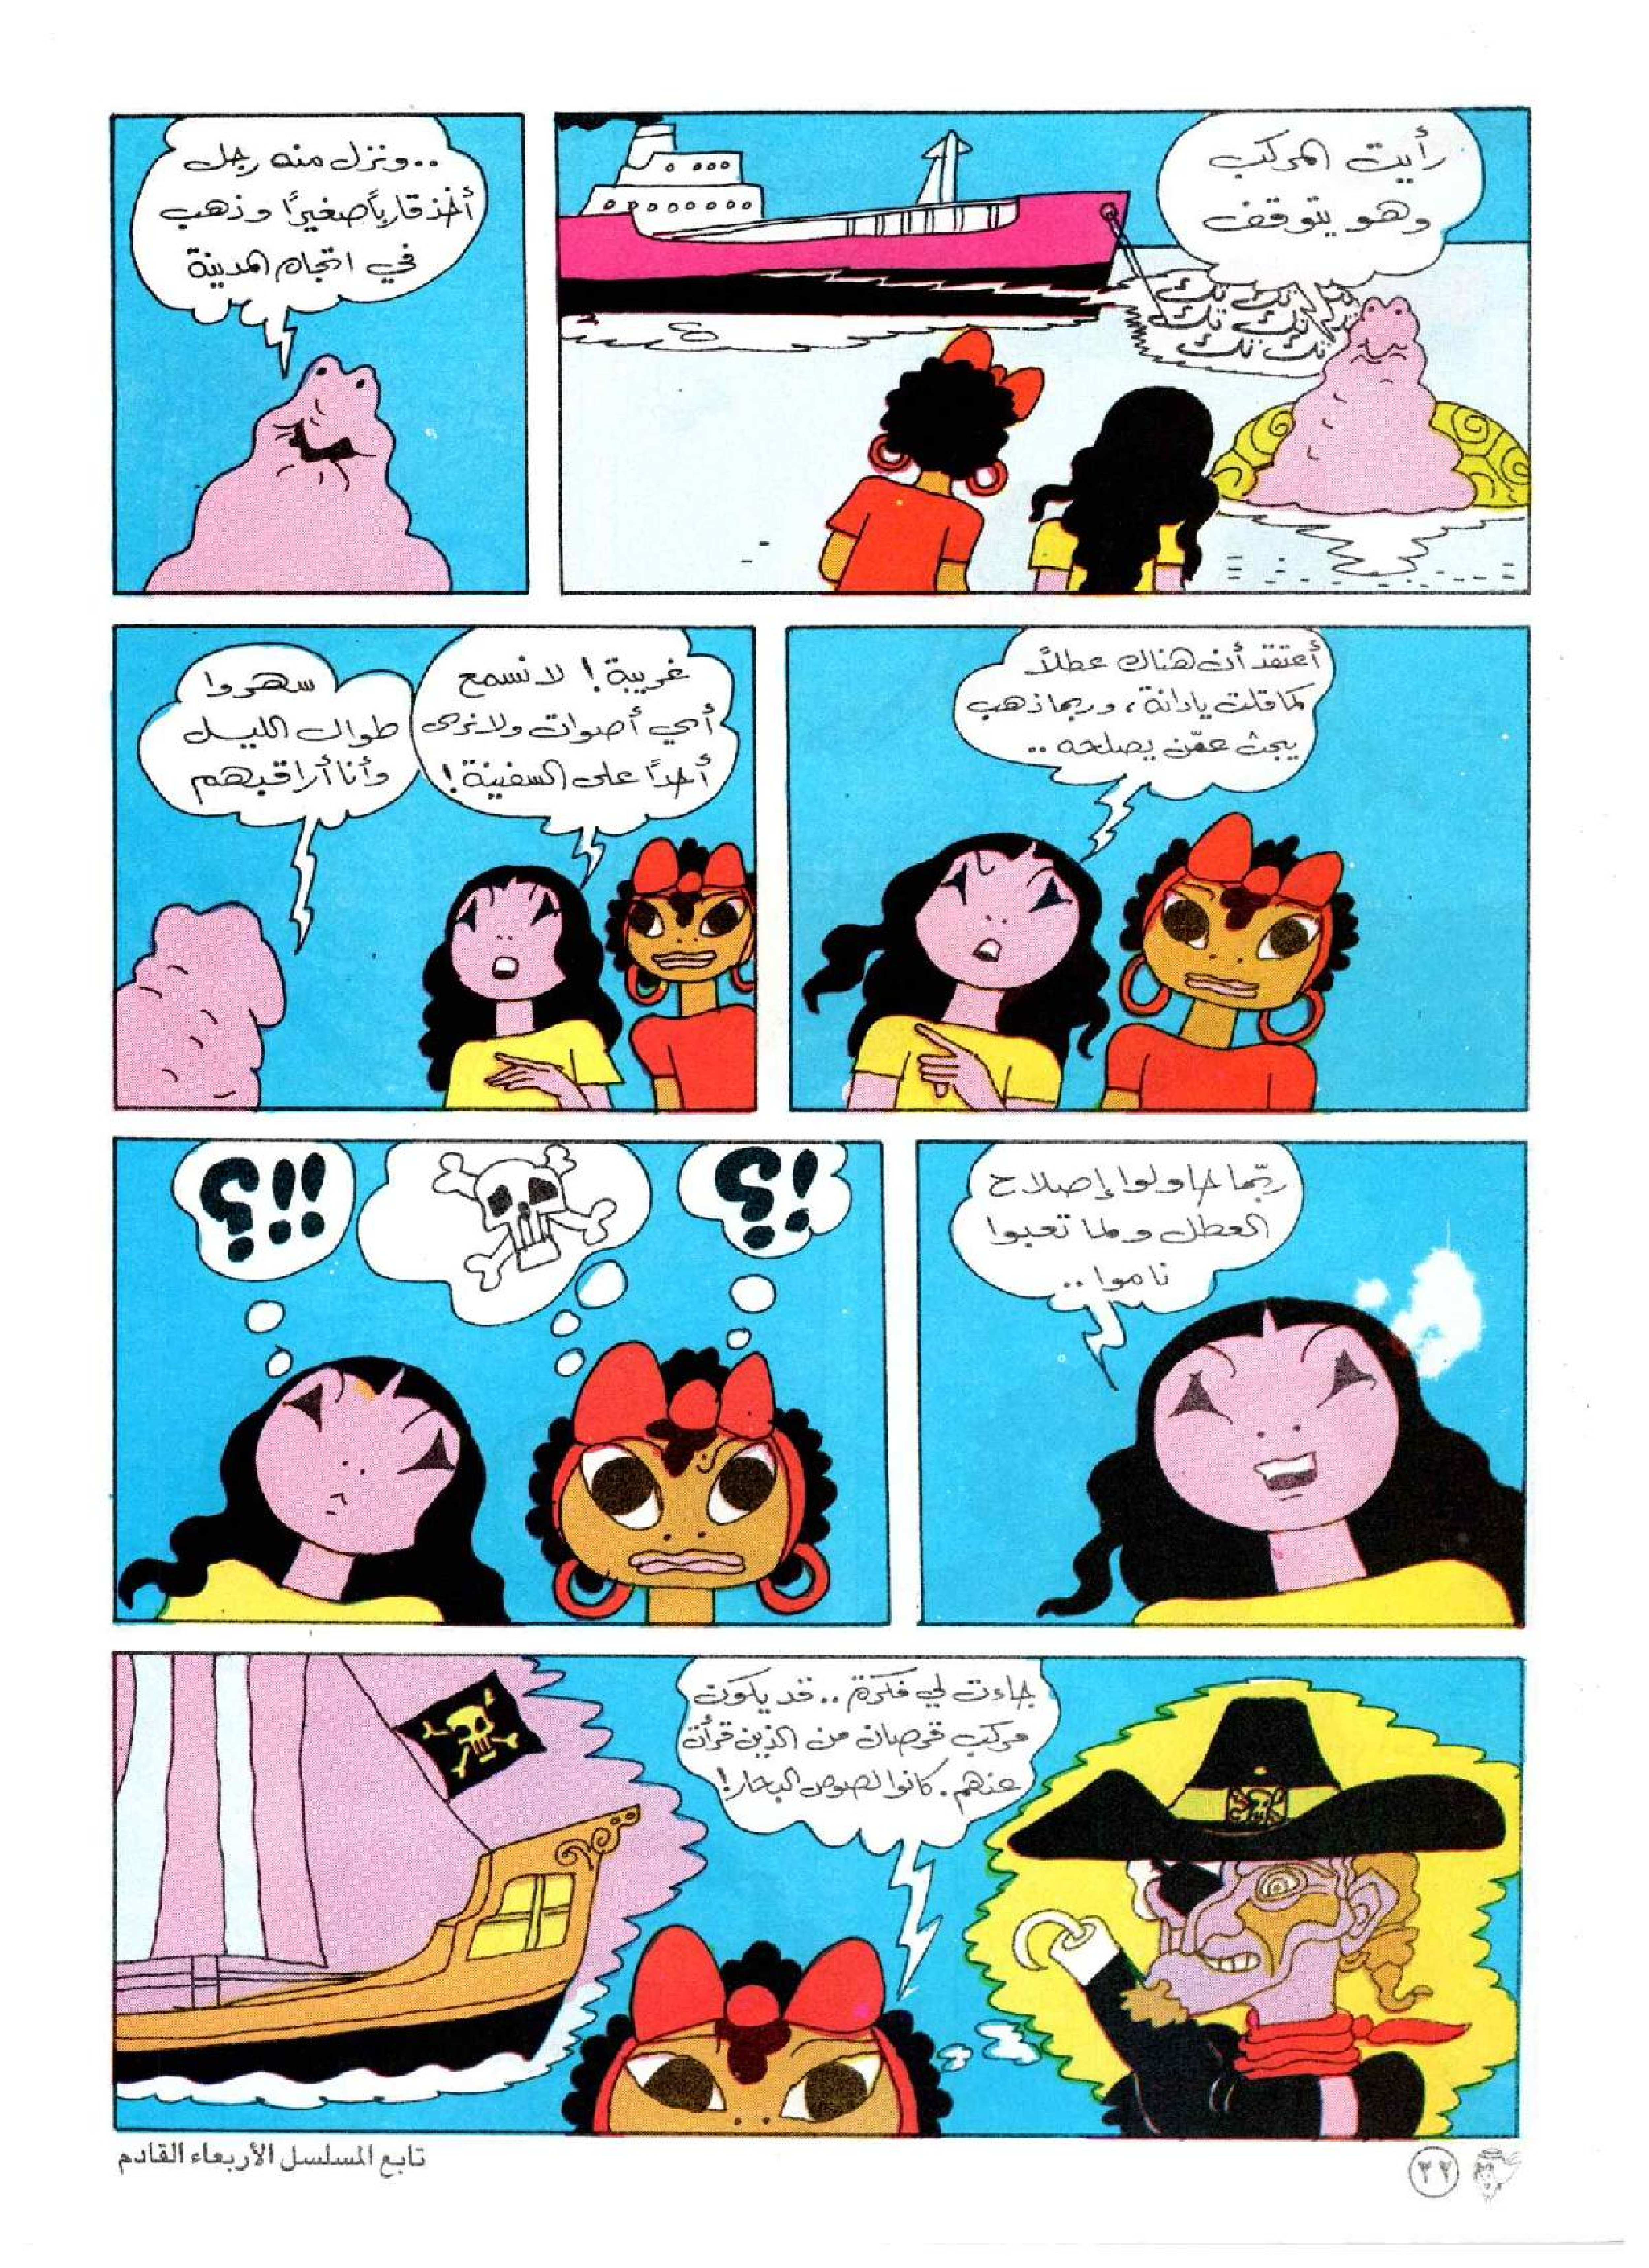 رأيت المركب
وهو يتوقف
تك تك تك
تك تك تك
تك تك تك
..ونزل منه رجل
أخذ قارباً صغيرًا وذهب
في اتجاه المدينة
أعتقد أن هناك عطلاً
كما قلت يادانة، وربما ذهب
يبحث عمّن يصلحه..
غريبة! لا نسمع
أي أصوات ولا نرى
أحدًا على السفينة!
سهروا
طوال الليل
وأنا أراقبهم
ربّما حاولوا إصلاح
العطل ولما تعبوا
ناموا..
!؟
!!؟
جاءت لي فكرة.. قد يكون
مركب قرصان من الذين قرأت
عنهم. كانوا لصوص البحار!
تابع المسلسل الأربعاء القادم